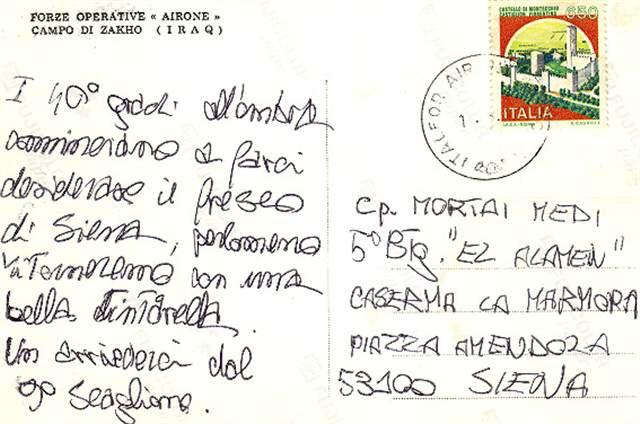 FORZE OPERATIVE « AIRONE »
CAMPO DI ZAKHO ( I R A Q )
I 40° gradi all'ombra
cominciano a farci
desiderare il fresco
di Siena, perlomeno
ritorneremo con una
bella tintarella.
Un arrivederci dal
9° Scaglione.
CASTELLO DI MONTECCHIO
CASTIGLION FIORENTINO
650
ITALIA
ITALFOR AIR
Cp. MORTAI MEDI
5° Btg. "EL ALAMEN"
CASERMA LA MARMORA
PIAZZA AMENDOLA
53100 SIENA